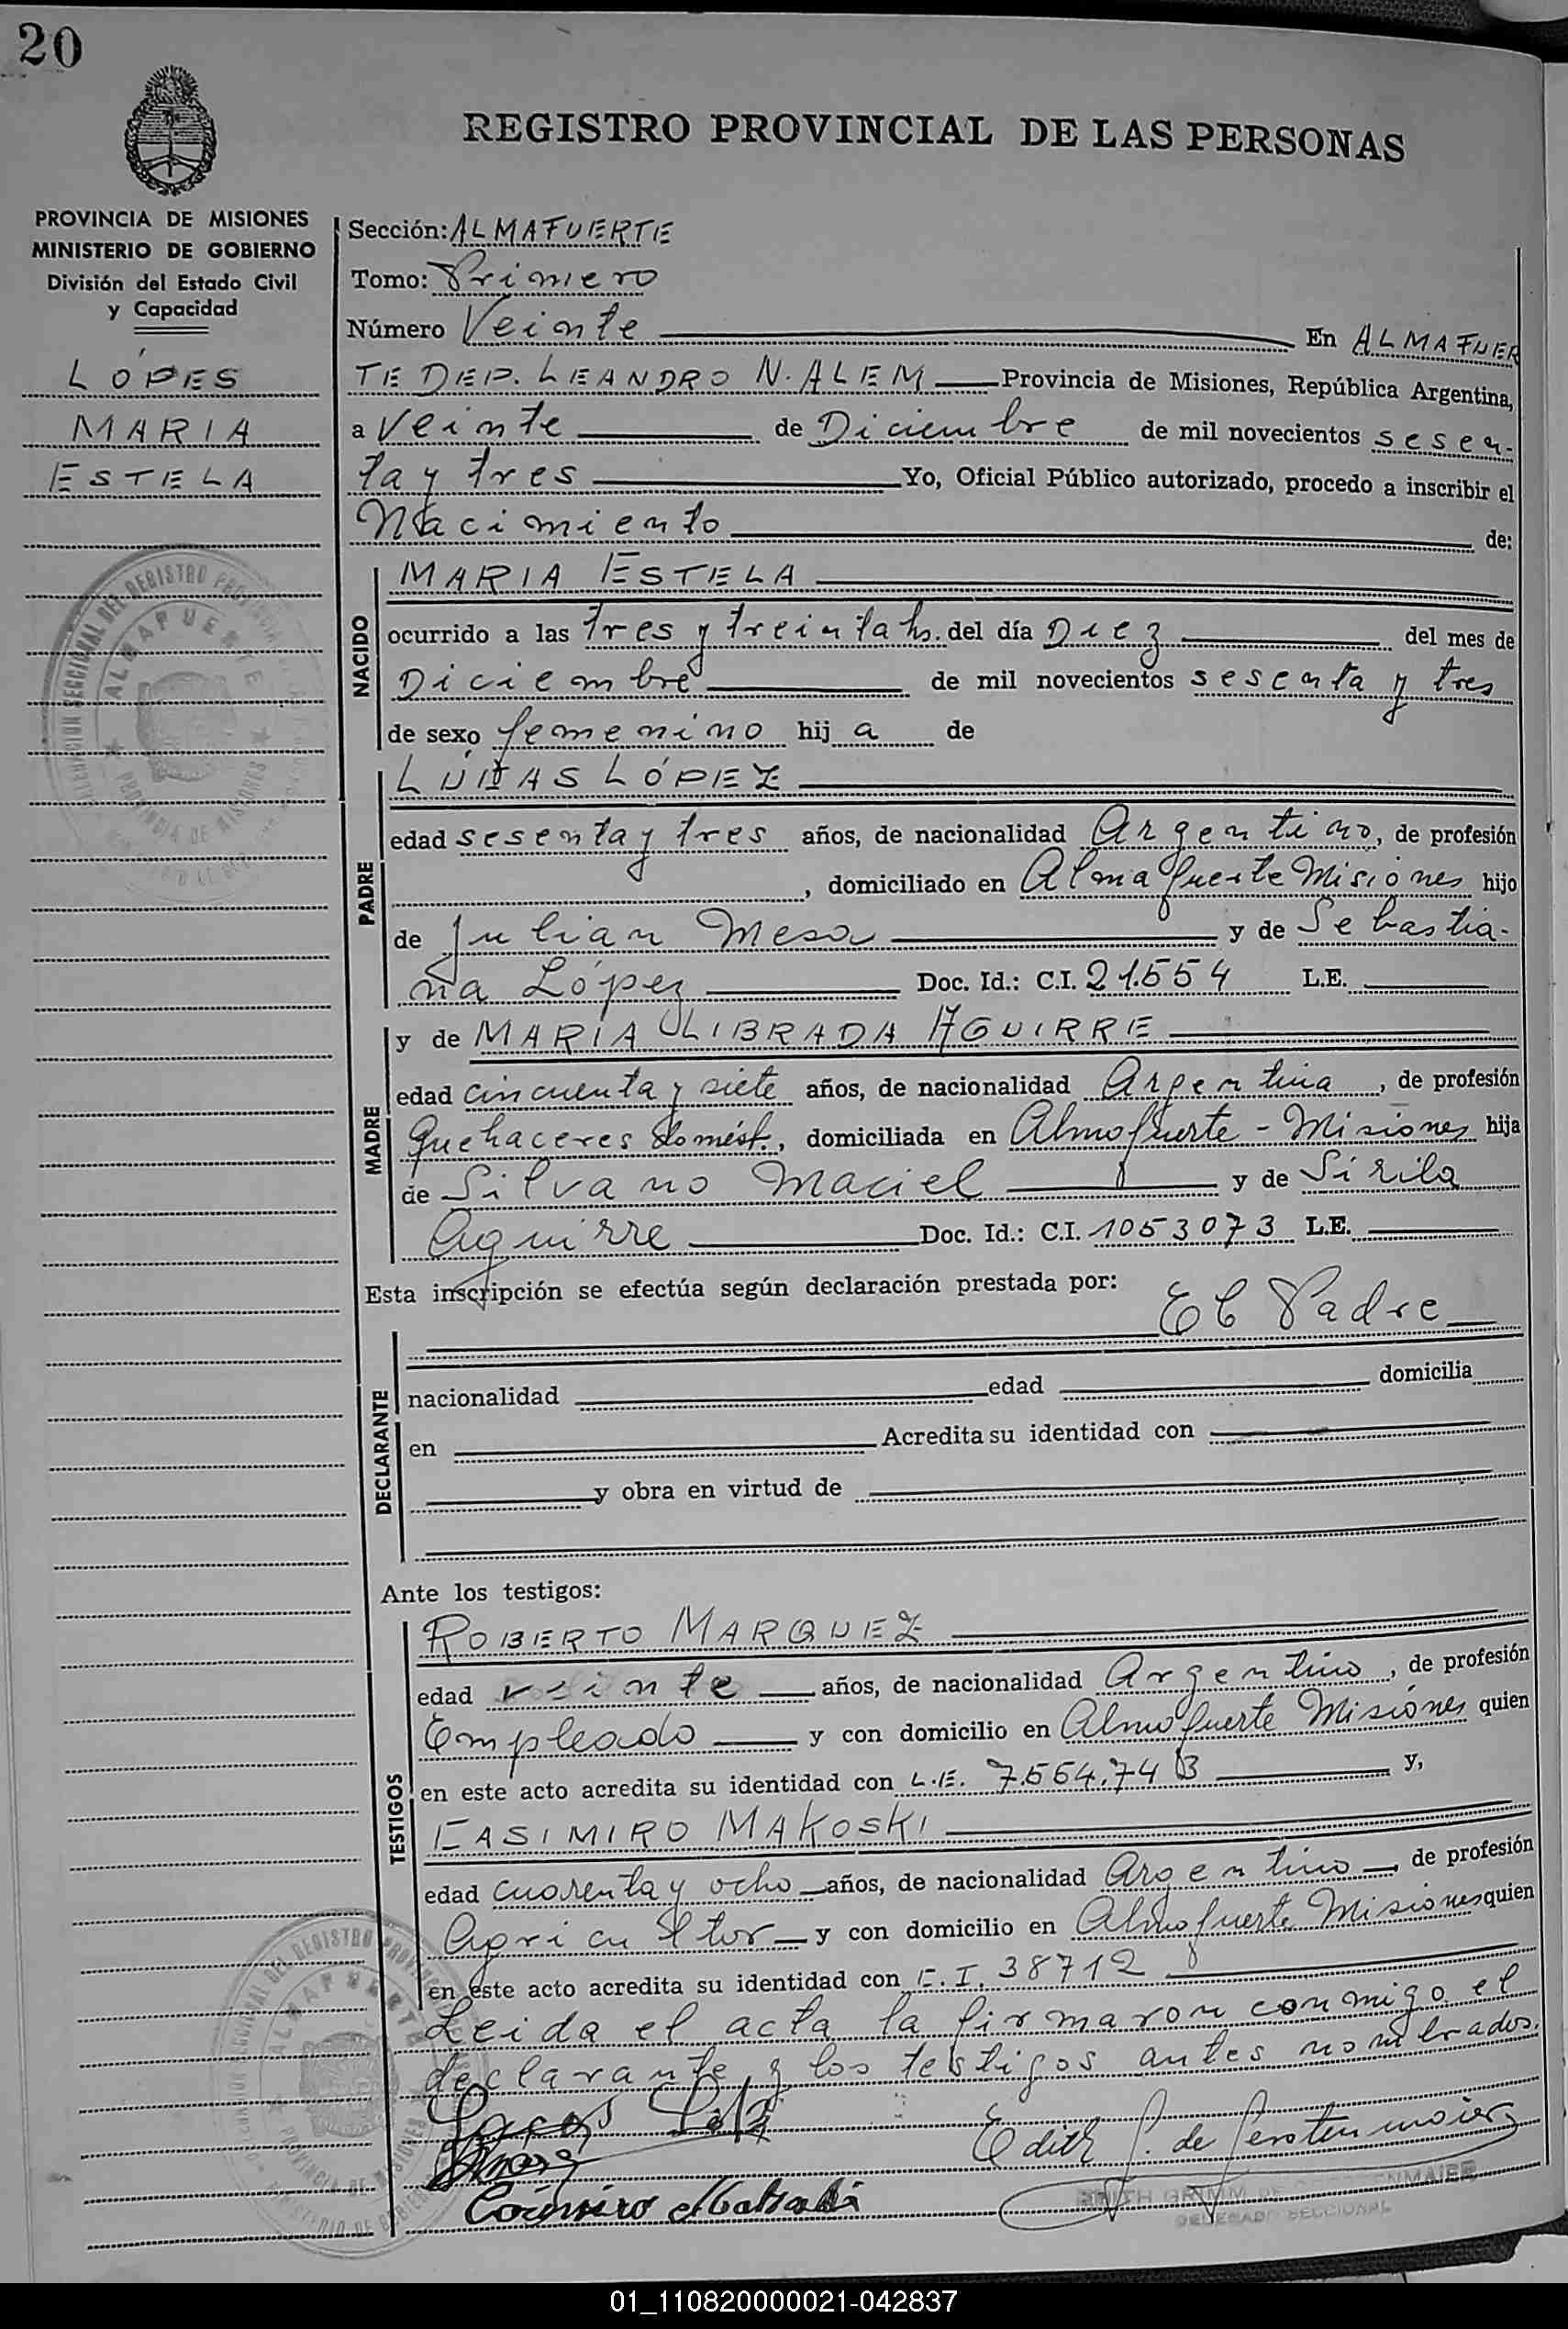 20
REGISTRO PROVINCIAL DE LAS PERSONAS
PROVINCIA DE MISIONES
MINISTERIO DE GOBIERNO
División del Estado Civil
y Capacidad
LÓPES
MARIA
ESTELA
Sección: ALMAFUERTE
Tomo: Primero
Número Veinte En ALMAFUER
TE DEP. LEANDRO N. ALEM Provincia de Misiones, República Argentina,
a Veinte de Diciembre de mil novecientos sesen-
ta y tres Yo, Oficial Público autorizado, procedo a inscribir el
Nacimiento de:
NACIDO
MARIA ESTELA
ocurrido a las tres y treinta hs. del día Diez del mes de
Diciembre de mil novecientos sesenta y tres
de sexo femenino hij a de
PADRE
LÓPEZ
edad sesenta y tres años, de nacionalidad Argentino, de profesión
, domiciliado en Almafuerte Misiones hijo
de Julian Mesa y de Sebastia-
na López Doc. Id.: C.I. 21.554 L.E.
MADRE
y de MARÍA LIBRADA AGUIRRE
edad cincuenta y siete años, de nacionalidad Argentina, de profesión
Quehaceres domést., domiciliada en Almafuerte - Misiones hija
de Silvano Maciel y de Sirila
Aguirre Doc. Id.: C.I. 1053073 L.E.
Esta inscripción se efectúa según declaración prestada por:
El Padre
DECLARANTE
nacionalidad edad domicilia
en Acredita su identidad con
y obra en virtud de
Ante los testigos:
TESTIGOS
ROBERTO MARQUEZ
edad veinte años, de nacionalidad Argentino, de profesión
Empleado y con domicilio en Almafuerte Misiones quien
en este acto acredita su identidad con L.E. 7.554.743 y,
CASIMIRO MAKOSKI
edad cuarenta y ocho años, de nacionalidad Argentino, de profesión
Agricultor y con domicilio en Almafuerte Misiones quien
en este acto acredita su identidad con C.I. 38712
Leida el acta la firmaron conmigo el
declarante y los testigos antes nombrados.
Edith G. de Gerstenmaier
Casimiro Makoski
EDITH GRIMM DE GERSTENMAIER
DELEGADO SECCIONAL
ALMAFUERTE
PROVINCIA DE MISIONES
01_110820000021-042837